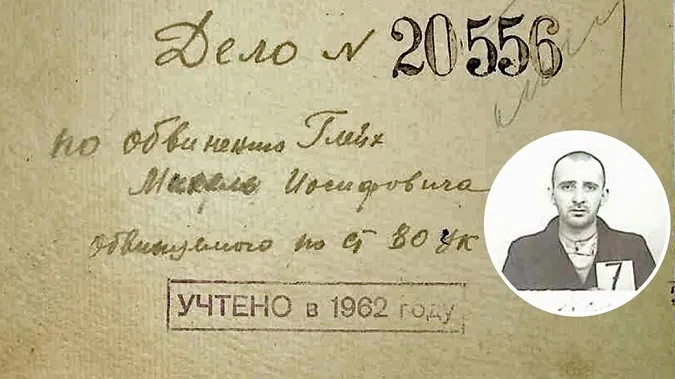 Дело N 20556
по обвинению Глейх
Михель Иосифовича
обвиняемого по ст 80 УК
УЧТЕНО в 1962 году
7